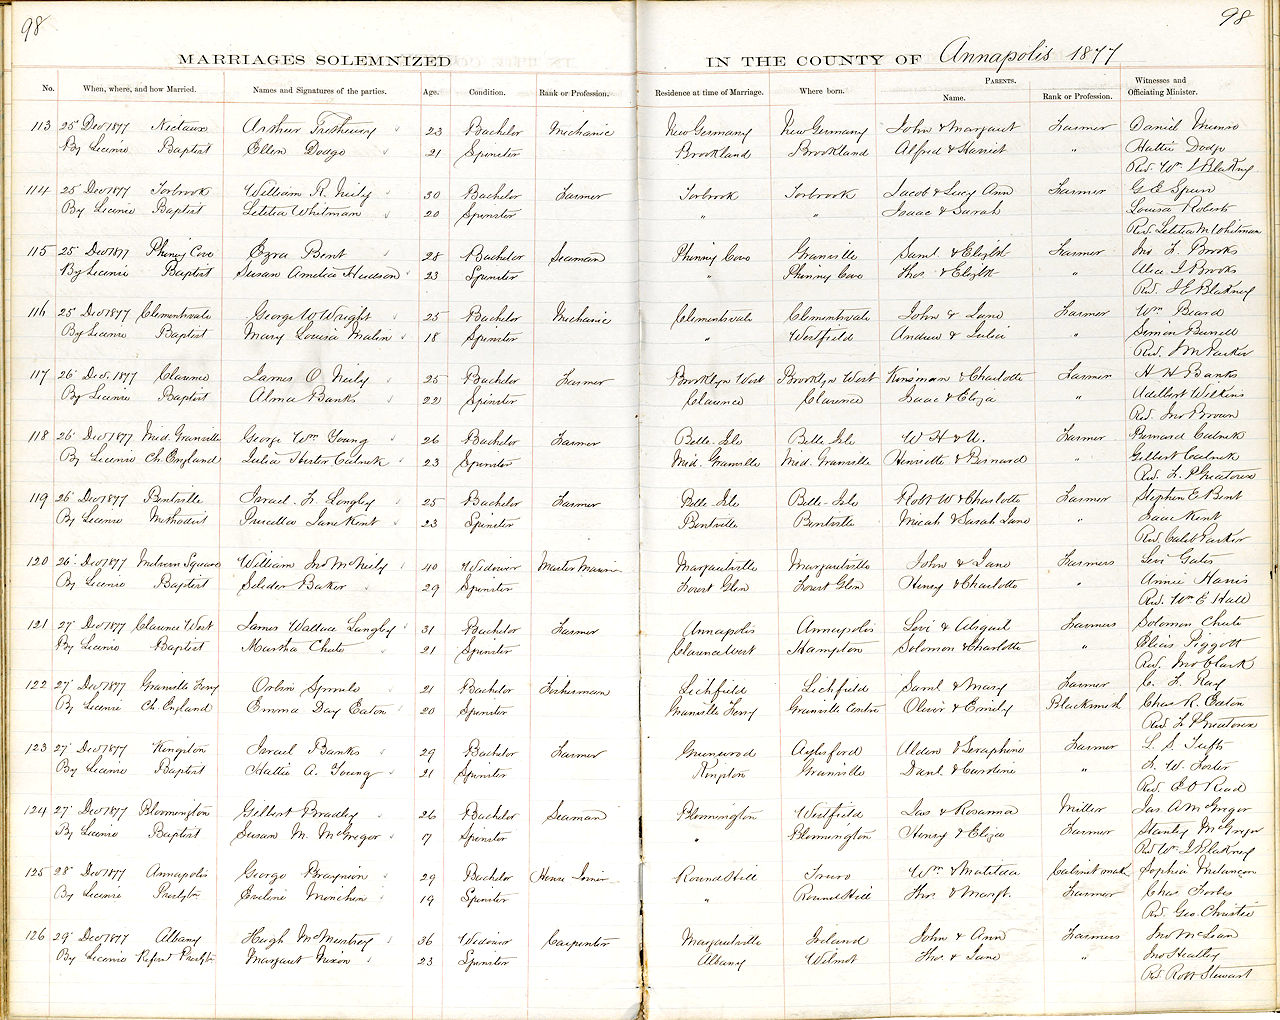 98
98
MARRIAGES SOLEMNIZED IN THE COUNTY OF Annapolis 1877
No. When, where, and how Married. Names and Signatures of the parties. Age. Condition. Rank or Profession. Residence at time of Marriage. Where born. PARENTS. Name. Rank or Profession. Witnesses and Officiating Minister.
113 25 Dec 1877 Nictaux Arthur 23 Bachelor Mechanic New Germany New Germany John & Margaret Farmer Daniel Munro
By License Baptist Ellen Dodge 21 Spinster Brookland Brookland Alfred & Harriet " Hattie Dodge
Rev. Wm I Blakney
114 25 Dec 1877 Torbrook William R. Neily 30 Bachelor Farmer Torbrook Torbrook Jacob & Lucy Ann Farmer G E Spurr
By License Baptist Letitia Whitman 20 Spinster " " Isaac & Sarah Louisa Roberts
Rev. Letitia M Whitman
115 25 Dec 1877 Phinny Cove Ezra Bent 28 Bachelor Seaman Phinny Cove Granville Saml & Elizbt Farmer Jno L Brooks
By License Baptist Susan Amelia Hudson 23 Spinster " Phinny Cove Thos & Elizbt " Alice I Brooks
Rev. I E Blakney
116 25 Dec 1877 Clementsvale George W Wright 25 Bachelor Mechanic Clementsvale Clementsvale John & Jane Farmer Wm Beard
By License Baptist Mary Louisa 18 Spinster " Westfield Andrew & Julia "
Rev. J M Parker
117 26 Dec. 1877 Clarence James O Neily 25 Bachelor Farmer Brooklyn West Brooklyn West Kinsman & Charlotte Farmer H H Banks
By License Baptist Alma Banks 22 Spinster Clarence Clarence Isaac & Eliza " Adelbert Wilkins
Rev. Jno Brown
118 26 Dec 1877 Mid. Granville George Wm Young 26 Bachelor Farmer Belle-Isle Belle Isle W H & U. Farmer Bernard Calnek
By License Ch. England Julia Hester Calnek 23 Spinster Mid. Granville Mid. Granville Henriette & Bernard " Gilbert Calnek
Rev. L P Greatorex
119 26 Dec 1877 Bentville Israel L. Longley 25 Bachelor Farmer Belle-Isle Belle-Isle Robt W & Charlotte Farmer Stephen E Bent
By License Methodist Priscilla Jane Kent 23 Spinster Bentville Bentville Micah & Sarah Jane " Isaac Kent
Rev. Caleb Parker
120 26 Dec 1877 Melvern Square William Jno McNeily 40 Widower Master Mason Margaretville Margaretville John & Jane Farmers Levi Gates
By License Baptist Baker 29 Spinster Forest Glen Forest Glen Henry & Charlotte " Annie Harris
Rev. Wm E Hall
121 27 Dec 1877 Clarence West James Wallace Langley 31 Bachelor Farmer Annapolis Annapolis Levi & Abigail Farmers Solomon Chute
By License Baptist Martha Chute 21 Spinster Clarence West Hampton Solomon & Charlotte " Elias Piggott
Rev. Jno Clark
122 27 Dec 1877 Granville Ferry Orbin Sproule 21 Bachelor Fisherman Lichfield Lichfield Saml & Mary Farmer C. L. Ray
By License Ch. England Emma Day Eaton 20 Spinster Granville Ferry Granville Centre Oliver & Emily Blacksmith Chas R. Eaton
Rev L P Greatorex
123 27 Dec 1877 Kingston Israel Banks 29 Bachelor Farmer Greenwood Aylesford Alden & Seraphine Farmer L. S. Tufts
By License Baptist Hattie A. Young 21 Spinster Kingston Granville Danl & Caroline " L. W. Foster
Rev. E O Read
124 27 Dec 1877 Bloomington Gilbert Bradley 26 Bachelor Seaman Blomington Westfield Jas & Rosanna Miller Jas A McGregor
By License Baptist Susan M. McGregor 17 Spinster " Blomington Henry & Eliza Farmer Stanley McGregor
Rev Wm I Blakney
125 28 Dec 1877 Annapolis George 29 Bachelor House Round Hill Truro Wm & Matilda Cabinet mak Sophia Melancon
By License Presbytn Eveline Minchin 19 Spinster " Round Hill Thos & Margt. Farmer Chas Forbes
Rev. Geo. Christie
126 29 Dec 1877 Albany Hugh McMurtrey 36 Widower Carpenter Margaretville Ireland John & Ann Farmers Jno McLean
By License Reford Presbytn Margaret Nixon 23 Spinster Albany Wilmot Thos & Jane " Jno Heatley
Rev. Robt Stewart